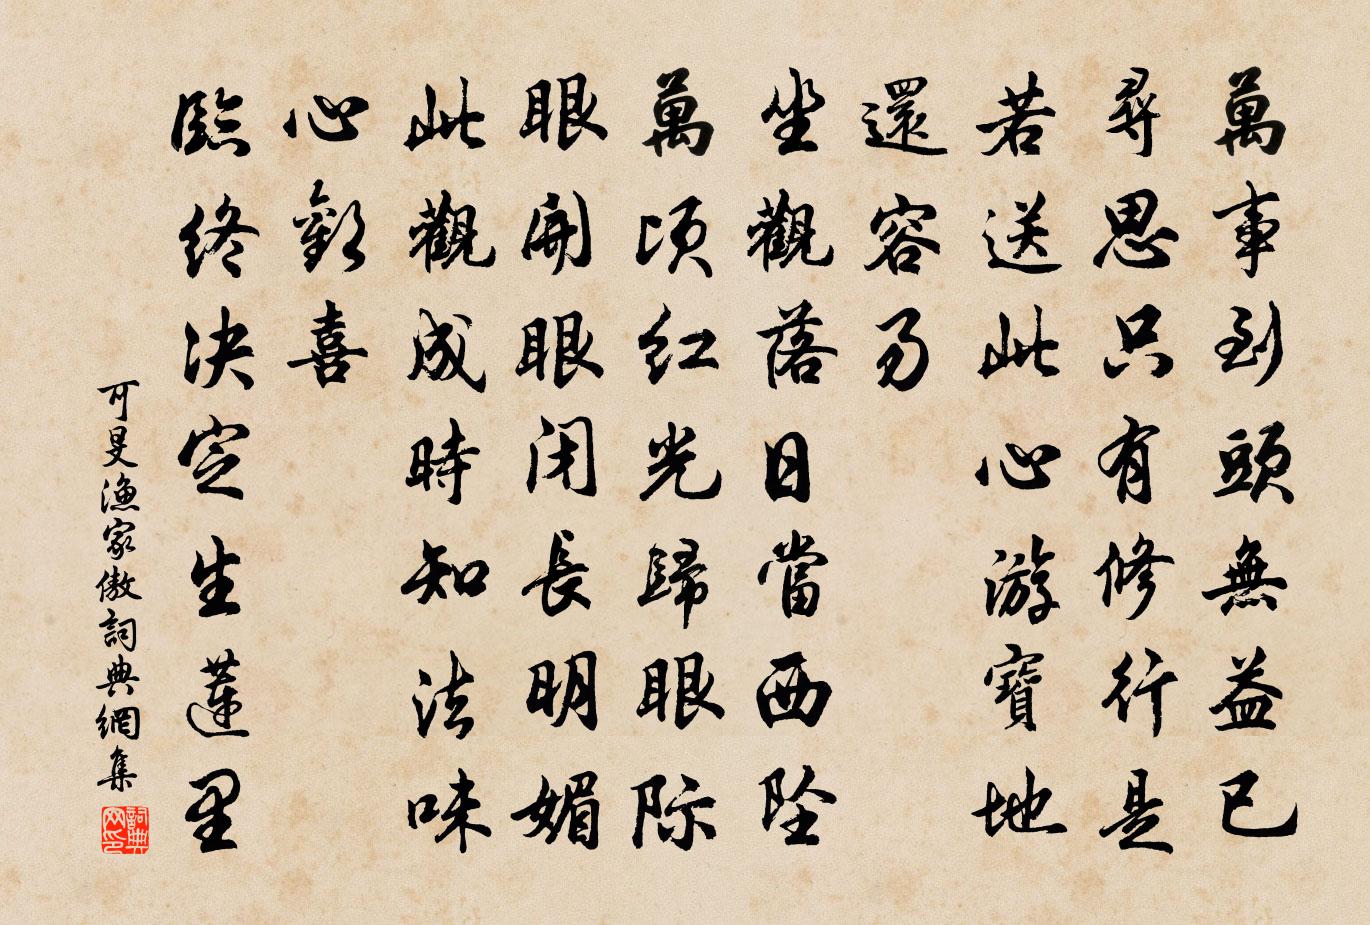 萬事到頭無益已
尋思只有修行是
若送此心游寶地
還容易
坐觀落日當西墜
萬頃紅光歸眼際
眼開眼闭長明媚
此觀成時知法味
心歡喜
臨終决定生蓮里
可旻漁家傲詞典網集
詞典网印